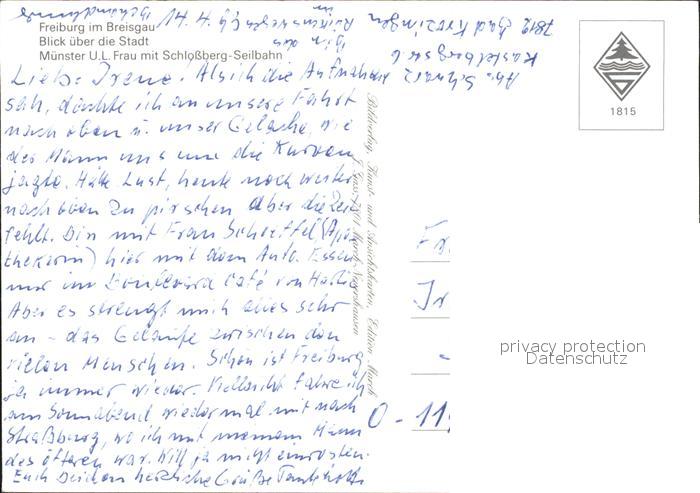 Freiburg im Breisgau
Blick über die Stadt
Münster U.L. Frau mit Schloßberg-Seilbahn
Liebe Irene! Als ich die Aufnahme
sah, dachte ich an unsere Fahrt
nach oben u. unser Gelache, wie
der Mann uns um die Kurven
jagte. Hätte Lust, heute noch weiter
nach oben zu pirschen, aber die Zeit
fehlt. Bin mit Frau Scheffel (Apo-
thekerin) hier mit dem Auto. Essen
nur im Boulevard Café von
Aber es strengt mich alles sehr
an - das Gelaufe zwischen den
vielen Menschen. Schön ist Freiburg
ja immer wieder. Vielleicht fahre ich
am Sonnabend wieder mal mit nach
Straßburg, wo ich mit meinem Mann
des öfteren war. Will ja nicht einrosten.
Euch beiden herzliche Grüße Tante
Abs. Schwarz
Kastelbergstr. 6
7812 Bad Krozingen
14. 4.
bin das
in
1815
Fr
Ir
O - 11
privacy protection
Datenschutz